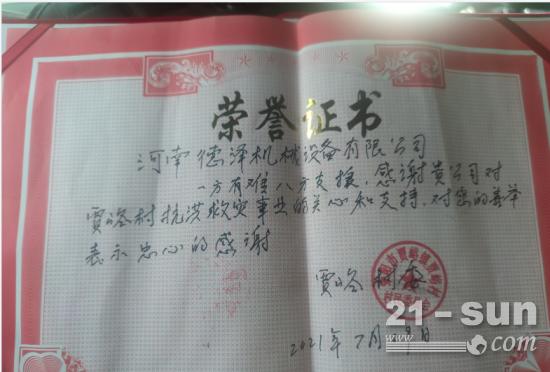 荣誉证书
河南德泽机械设备有限公司
一方有难八方支援,感谢贵公司对
贾峪村抗洪救灾事业的关心和支持,对您的善举
表示忠心的感谢
贾峪村委
2021年7月 日
21-sun
.com